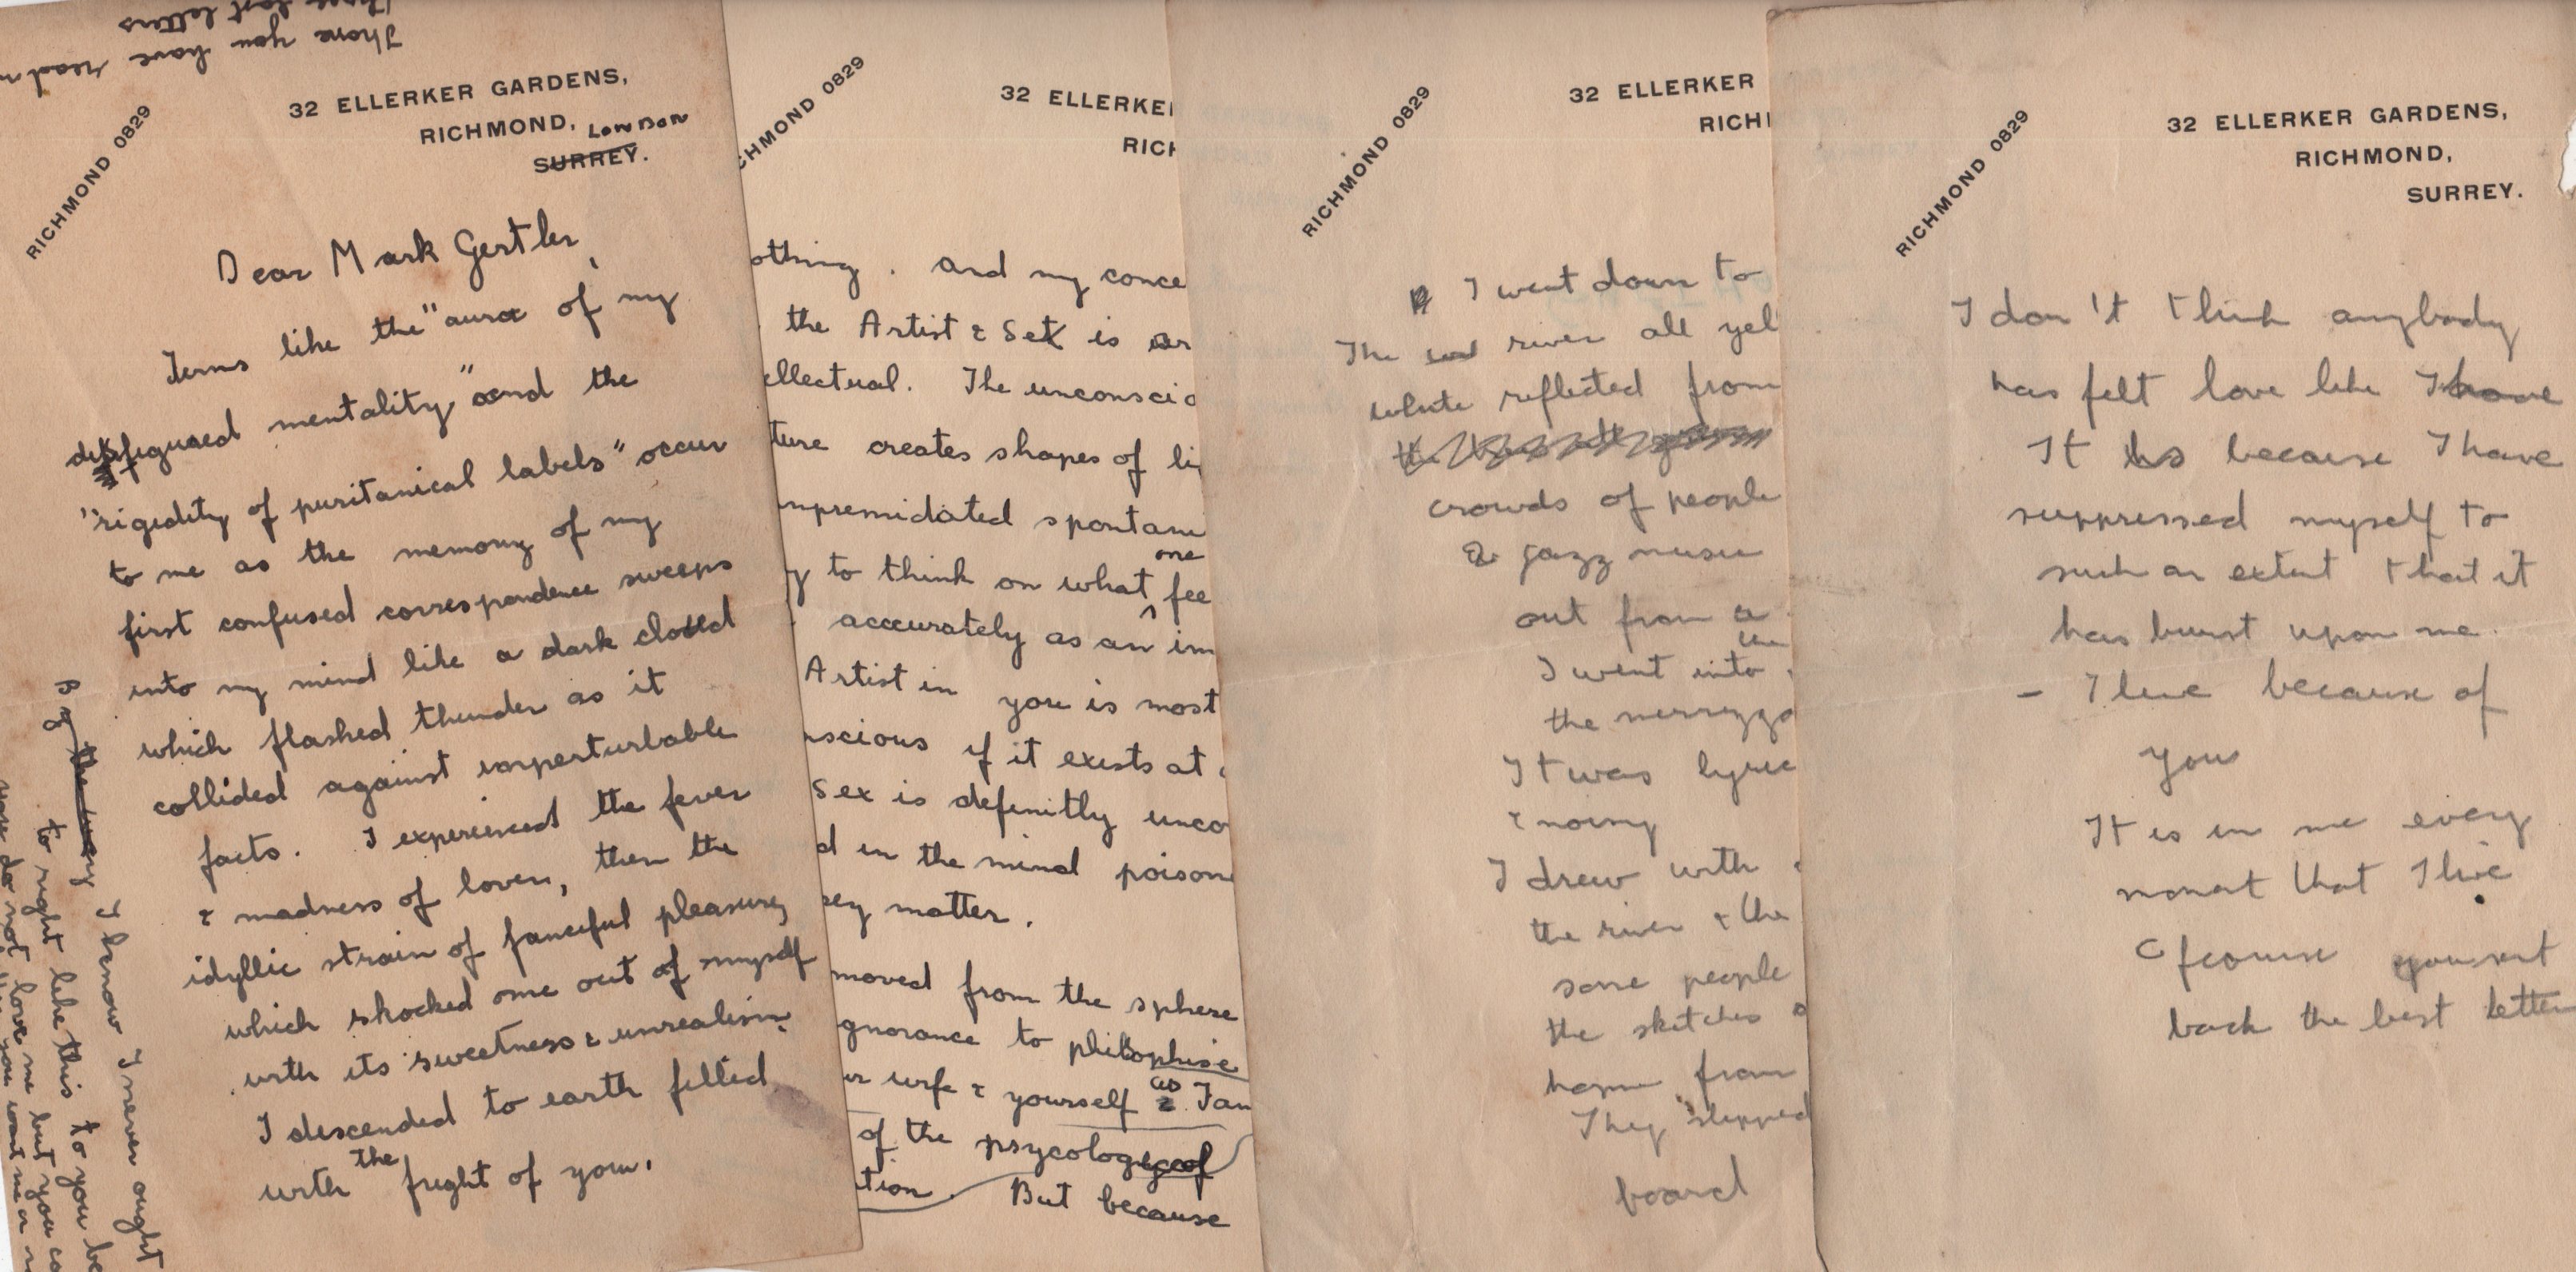 I hope you have read m
last letters
RICHMOND 0829
32 ELLERKER GARDENS,
RICHMOND, LONDON
SURREY.
Dear Mark Gertler,
Terms like the "aura of my
disfigured mentality" and the
"rigidity of puritanical labels" occur
to me as the memory of my
first confused correspondence sweeps
into my mind like a dark cloud
which flashed thunder as it
collided against imperturbable
facts. I experienced the fever
& madness of lover, then the
idyllic strain of fanciful pleasure
which shocked me out of myself
with its sweetness & unrealism.
I descended to earth filled
with the fright of you.
I know I never ought
to right like this to you be
you do not love me but you co
you want me
CHMOND 0829
32 ELLERKE
RICH
othing. And my conce
the Artist & Sex is
ellectual. The unconscio
ture creates shapes of li
unpremidated spontane
y to think on what one fee
accurately as an im
Artist in you is most
nscious if it exists at
Sex is definitly unco
d in the mind poison
sey matter.
moved from the sphere
gnorance to philosophise
ur wife & yourself as I am
of the psycology of
tion. But because
RICHMOND 0829
32 ELLERKER
RICH
I went down to
The river all yel
white reflected from
crowds of people
& jazz music
out from a
I went into
the merrygo
It was lyric
& noisy
I drew with
the river & the
some people
the sketches
home from
They slipped
board
RICHMOND 0829
32 ELLERKER GARDENS,
RICHMOND,
SURREY.
I don't think anybody
has felt love like I have
It is because I have
suppressed myself to
such an extent that it
has burst upon me.
- I live because of
you
It is in me every
moment that I live
Of course you sent
back the best letter